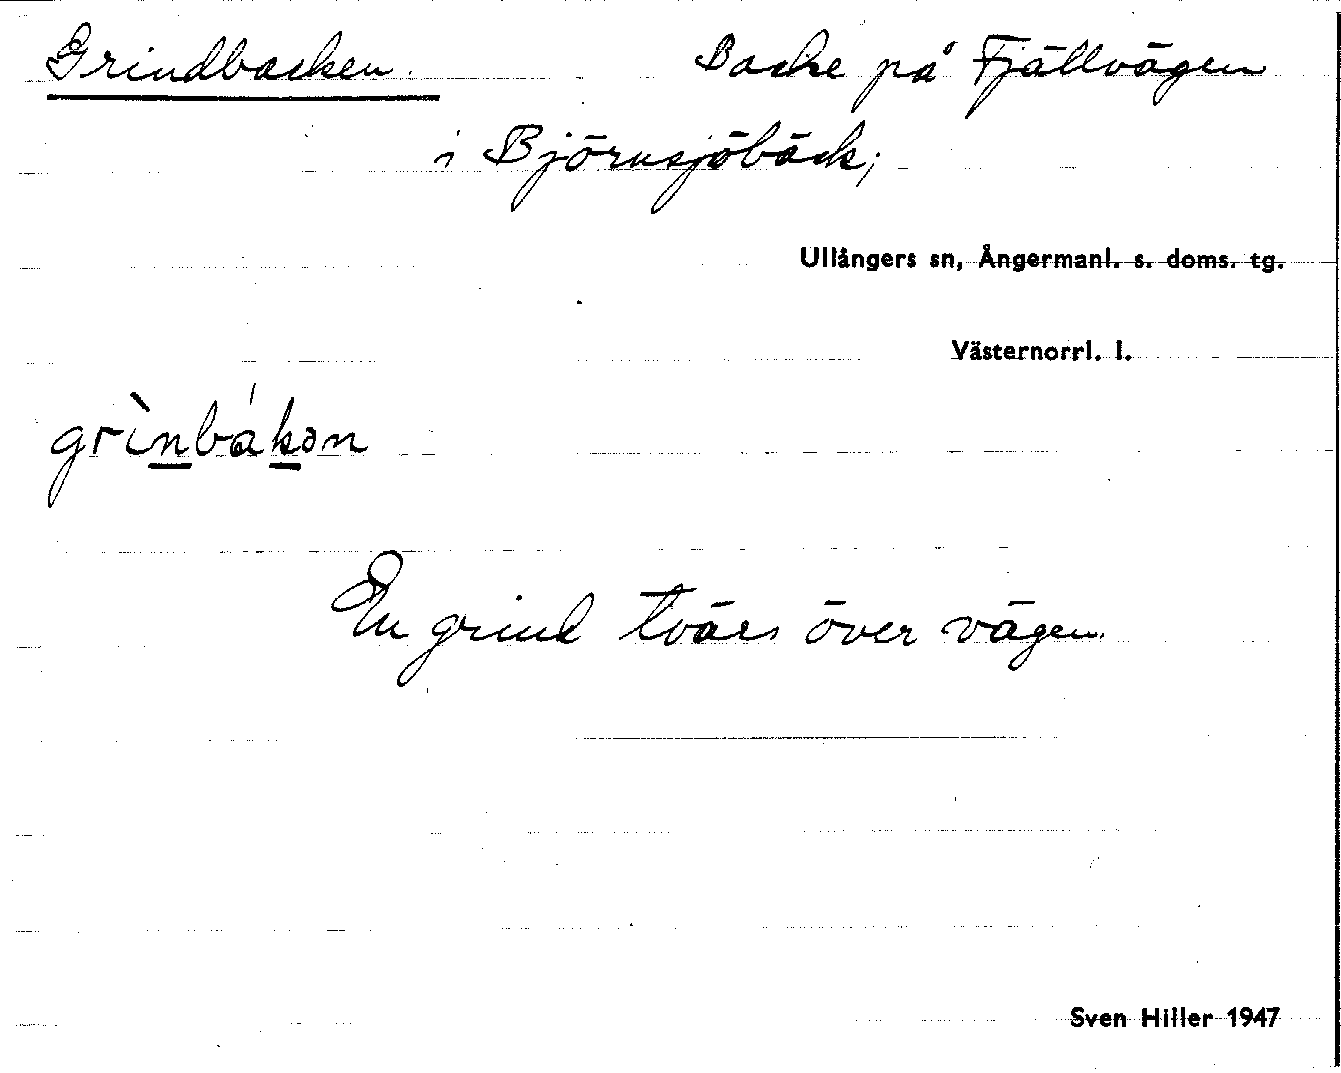 Grindbacken. Backe på Fjällvägen
i Björnsjöbäck;
Ullångers sn, Ångermanl. s. doms. tg.
Västernorrl. l.
grìn̲bák̲ən
En grind tvärs över vägen.
Sven Hiller 1947